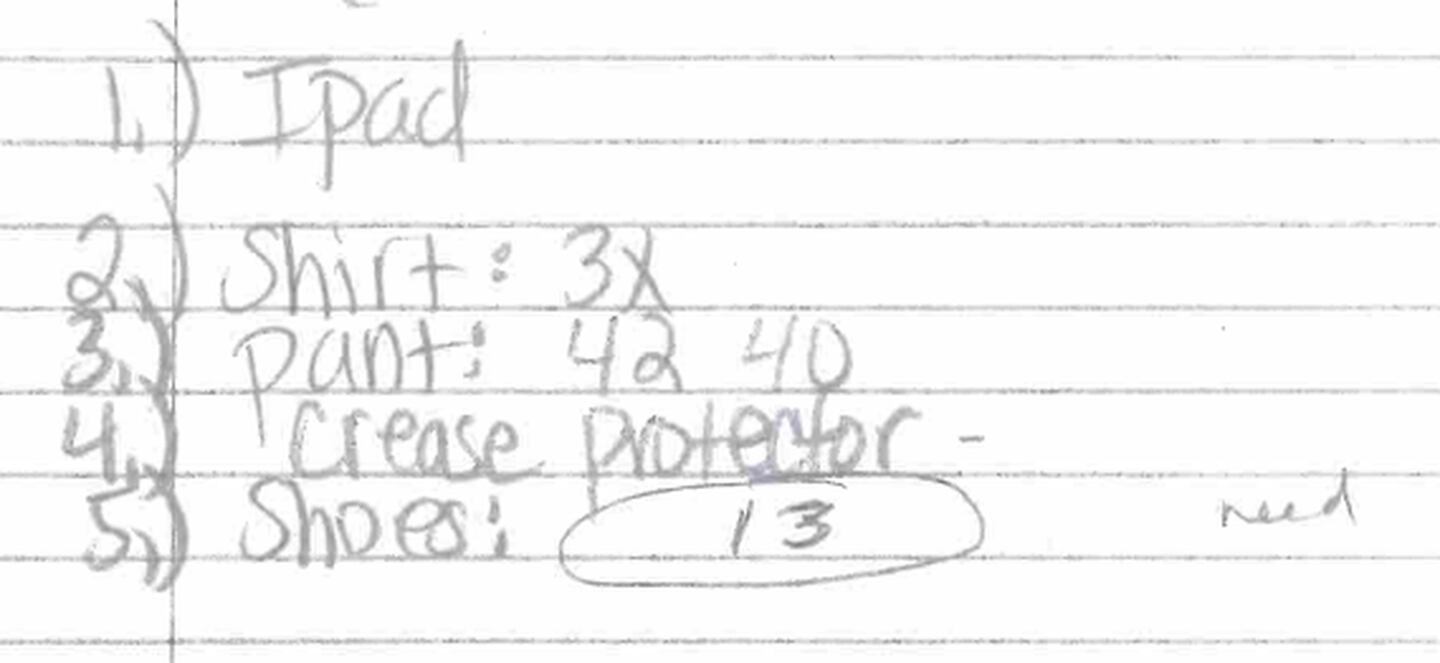 1.) Ipad
2.) Shirt: 3X
3.) pant: 42 40
4.) Crease protector -
5.) Shoes: 13 need